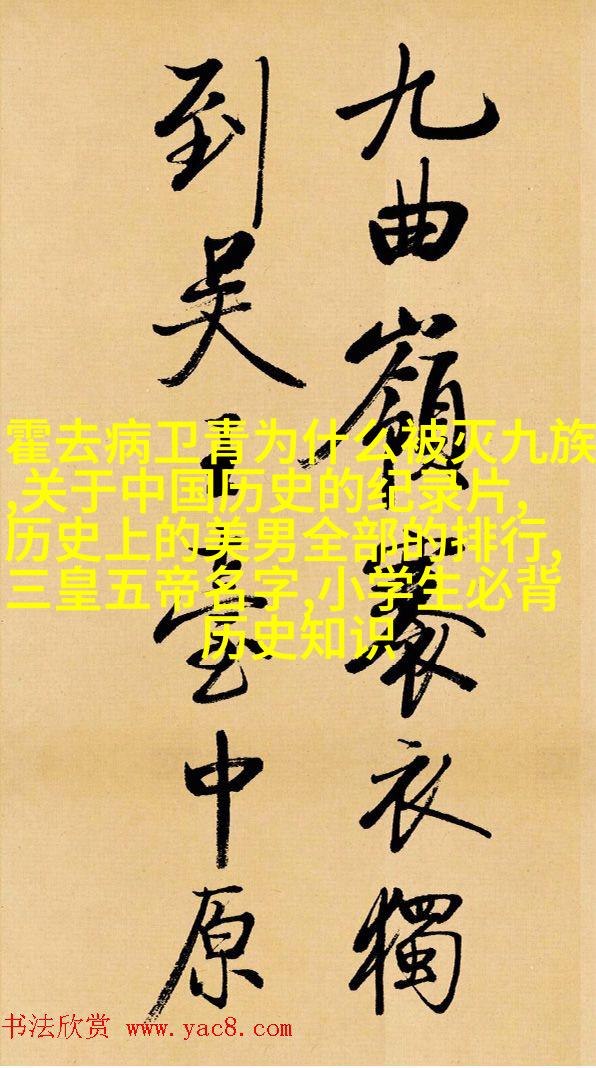 九曲嶺褰衣獨
到吴王臺中原
霍去病卫青为什么被灭九族
,关于中国历史的纪录片,
历史上的美男全部的排行,
三皇五帝名字,小学生必背
历史知识
书法欣赏 www.yac8.com